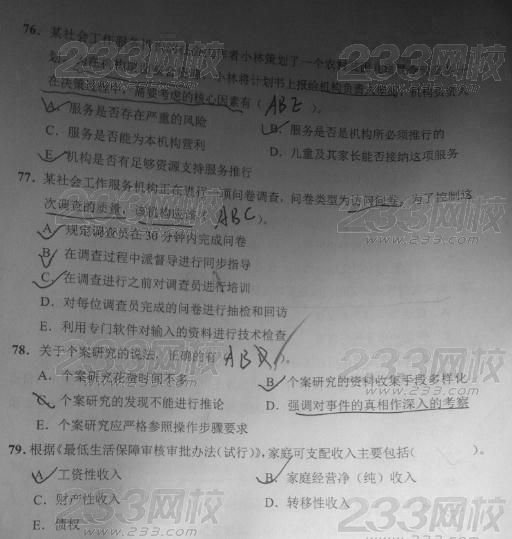 76. 某社会工作服务机构的社会工作者小林策划了一个农村
小林将计划书上报给机构负责人
在决策过程中，需要考虑的核心因素有（ABE）。
A. 服务是否存在严重的风险
B. 服务是否是机构所必须推行的
C. 服务是否能为本机构营利
D. 儿童及其家长能否接纳这项服务
E. 机构是否有足够资源支持服务推行
77. 某社会工作服务机构正在进行一项问卷调查，问卷类型为访问问卷，为了控制这
次调查的质量，该机构应该（ABC）。
A. 规定调查员在30分钟内完成问卷
B. 在调查过程中派督导进行同步指导
C. 在调查进行之前对调查员进行培训
D. 对每位调查员完成的问卷进行抽检和回访
E. 利用专门软件对输入的资料进行技术检查
78. 关于个案研究的说法，正确的有（AB）。
A. 个案研究花费时间不多
B. 个案研究的资料收集手段多样化
C. 个案研究的发现不能进行推论
D. 强调对事件的真相作深入的考察
E. 个案研究应严格参照操作步骤要求
79. 根据《最低生活保障审核审批办法（试行）》，家庭可支配收入主要包括（ ）。
A. 工资性收入
B. 家庭经营净（纯）收入
C. 财产性收入
D. 转移性收入
E. 债权
233网校
www.233.com